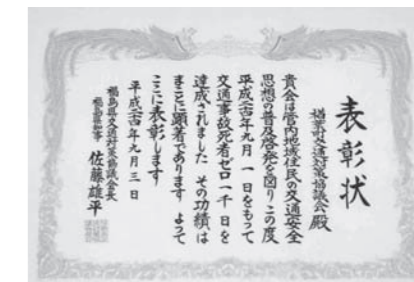 表彰状
楢葉町交通対策協議会殿
貴会は管内地域住民の交通安全
思想の普及啓発を図りこの度
平成二四年九月一日をもって
交通事故死者ゼロ一千日を
達成されました その功績は
まことに顕著であります よって
ここに表彰します
平成二四年九月三日
福島県交通対策協議会長
福島県知事 佐藤雄平